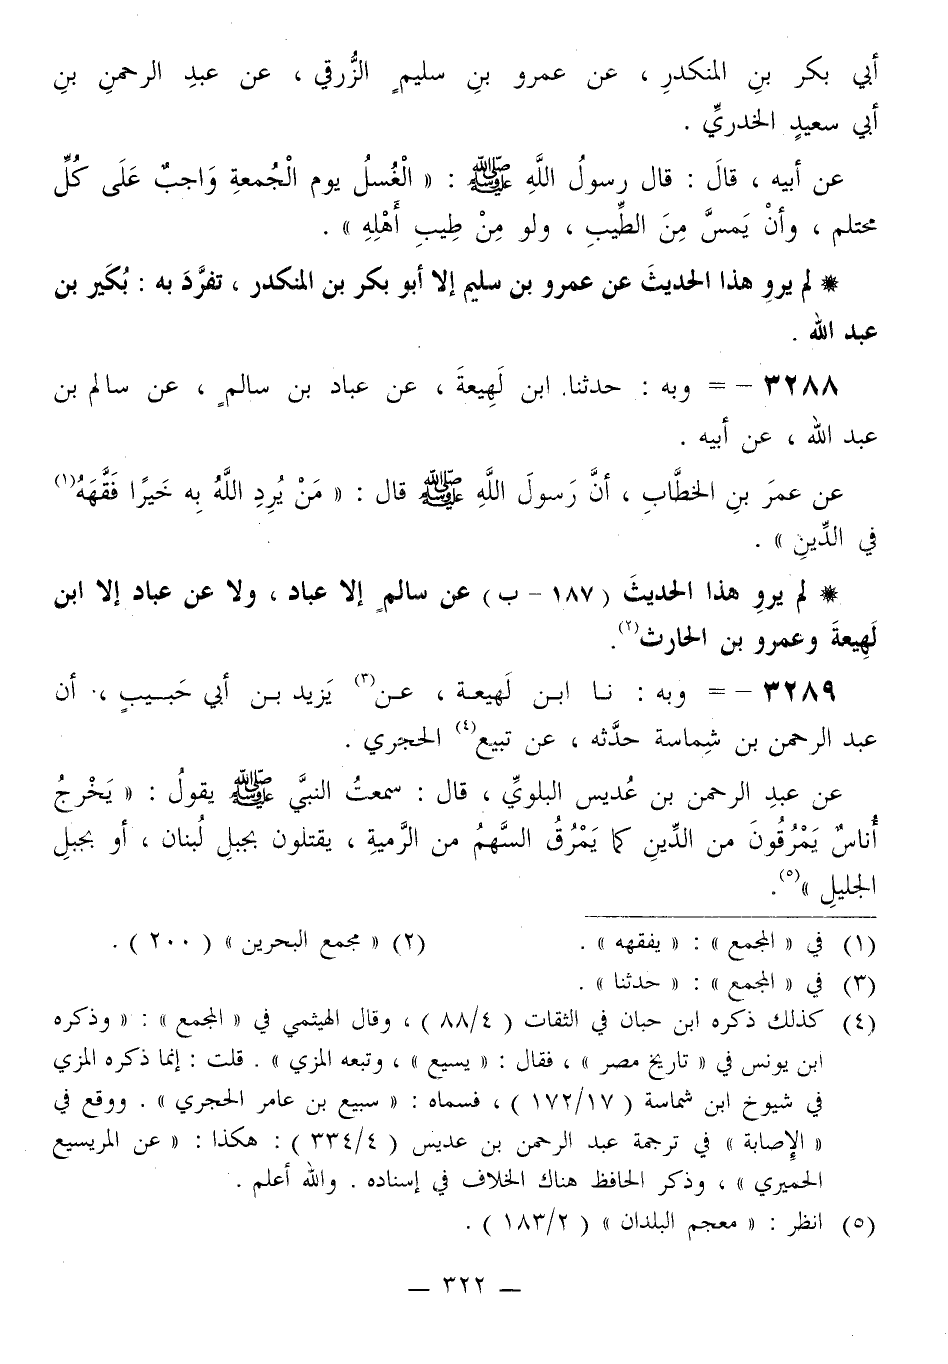 أبي بكر بنِ المنكدرِ ، عن عمرو بنِ سليمٍ الزُّرقي ، عن عبدِ الرحمنِ بنِ
أبي سعيدٍ الخدريِّ .
عن أبيه ، قالَ : قال رسولُ اللَّهِ ﷺ : « الْغُسلُ يوم الْجُمعةِ وَاجبٌ عَلَى كُلِّ
محتلم ، وأنْ يَمسَّ مِنَ الطِّيبِ ، ولو مِنْ طِيبِ أَهْلِهِ » .
* لم يروِ هذا الحديثَ عن عمرو بن سليم إلا أبو بكر بن المنكدر ، تفرَّدَ به : بُكَير بن
عبد الله .
٣٢٨٨ – = وبه : حدثنا ابن لَهِيعةَ ، عن عباد بن سالمٍ ، عن سالم بن
عبد الله ، عن أبيه .
عن عمرَ بنِ الخطَّابِ ، أنَّ رَسولَ اللَّهِ ﷺ قال : « مَنْ يُرِدِ اللَّهُ بِه خَيرًا فَقَّهَهُ(١)
في الدِّينِ » .
* لم يروِ هذا الحديثَ ( ١٨٧ – ب ) عن سالمٍ إلا عباد ، ولا عن عباد إلا ابن
لَهِيعةَ وعمرو بن الحارث(٢).
٣٢٨٩ – = وبه : نـا ابـن لَهيعـة ، عـن(٣) يَزيد بـن أبي حَبـيـبٍ ، أن
عبد الرحمن بن شِماسة حدَّثه ، عن تبيع(٤) الحجري .
عن عبدِ الرحمن بن عُديس البلويِّ ، قال : سمعتُ النبيَّ ﷺ يقولُ : « يَخْرجُ
أُناسٌ يَمْرُقُونَ من الدِّينِ كما يَمْرُقُ السَّهمُ من الرَّميةِ ، يقتلون بجبلِ لُبنان ، أو بجبلِ
الجليلِ »(٥).
(١) في « المجمع » : « يفقهه » . (٢) « مجمع البحرين » ( ٢٠٠ ) .
(٣) في « المجمع » : « حدثنا » .
(٤) كذلك ذكره ابن حبان في الثقات ( ٨٨/٤ ) ، وقال الهيثمي في « المجمع » : « وذكره
ابن يونس في « تاريخ مصر » ، فقال : « يسيع » ، وتبعه المزي » . قلت : إنما ذكره المزي
في شيوخ ابن شماسة ( ١٧٢/١٧ ) ، فسماه : « سبيع بن عامر الحجري » . ووقع في
« الإصابة » في ترجمة عبد الرحمن بن عديس ( ٣٣٤/٤ ) : هكذا : « عن المريسيع
الحميري » ، وذكر الحافظ هناك الخلاف في إسناده . والله أعلم .
(٥) انظر : « معجم البلدان » ( ١٨٣/٢ ) .
— ٣٢٢ —